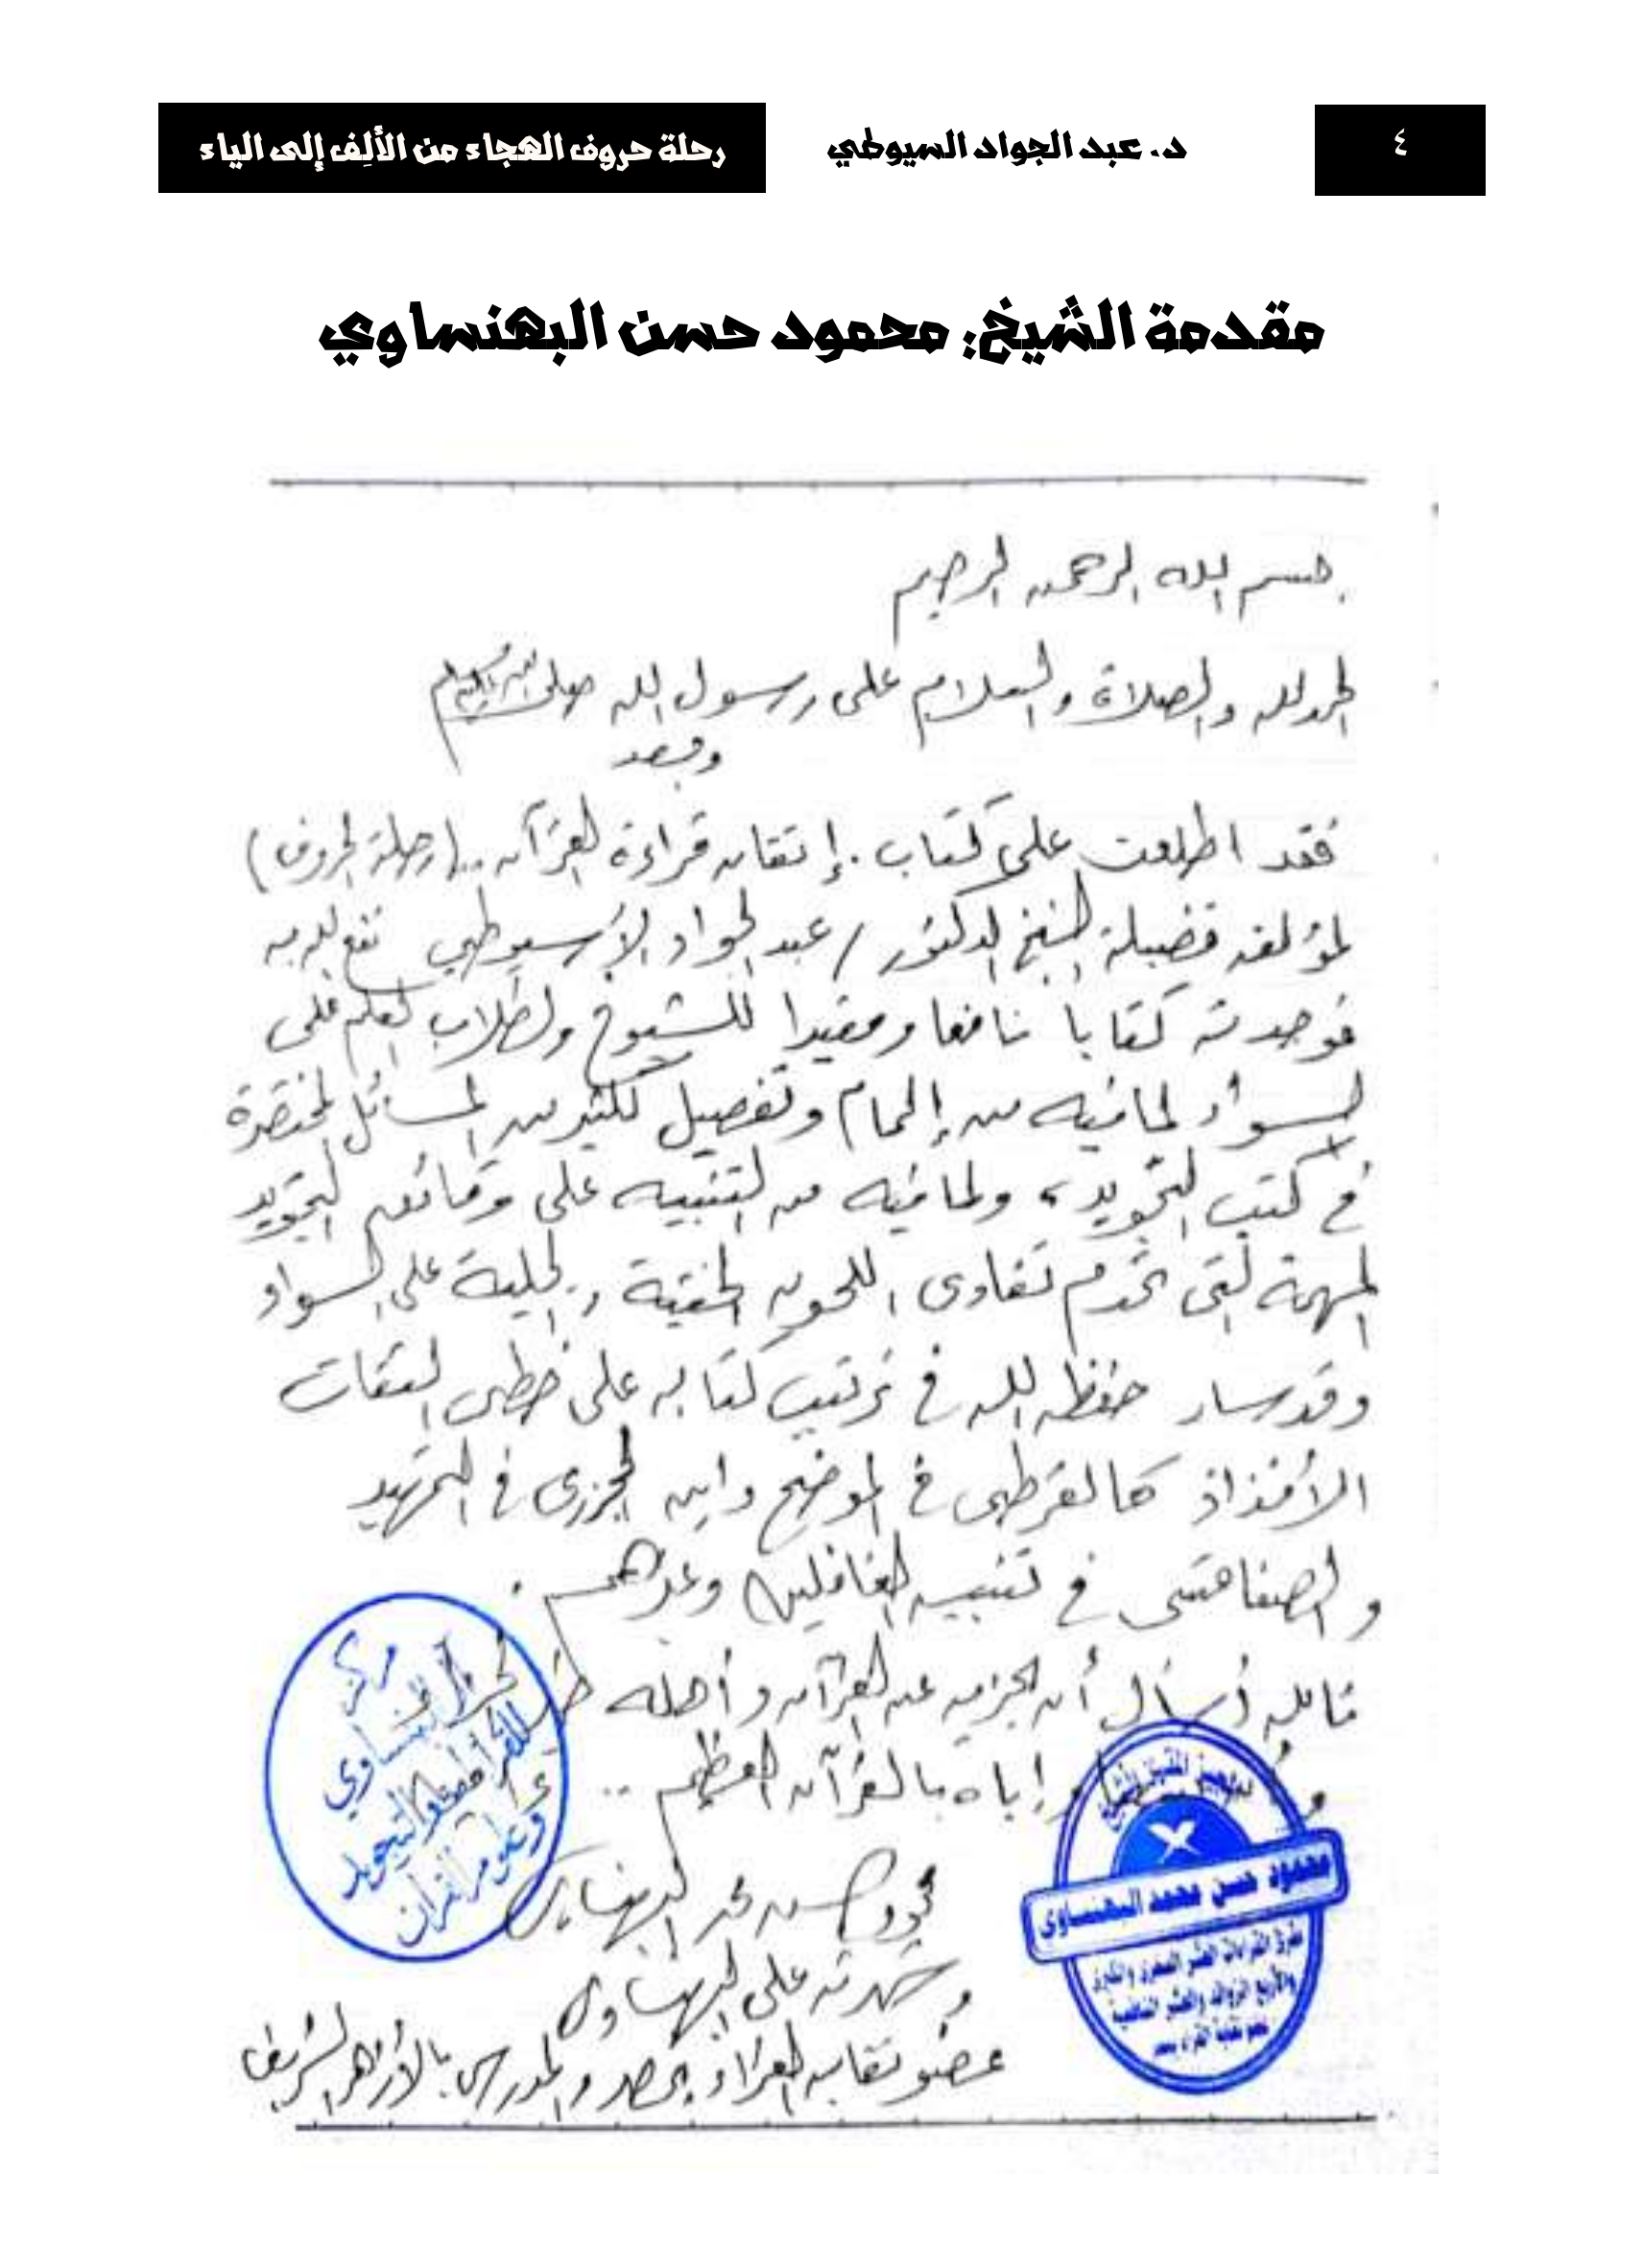 ٤
د. عبد الجواد السيوطي
رحلة حروف الهجاء من الألِف إلى الياء
مقدمة الشيخ: محمود حسن البهنساوي
بسم الله الرحمن الرحيم
الحمد لله والصلاة والسلام على رسول الله صلى الله عليه وسلم
وبعد
فقد اطلعت على كتاب. إتقان قراءة القرآن .. (رحلة الحروف)
لمؤلفه فضيلة الشيخ الدكتور / عبد الجواد الأسيوطي نفع الله به
فوجدته كتابا نافعا ومفيدا للشيوخ ولطلاب العلم على
السواء لما فيه من إلمام وتفصيل لكثير من المسائل المختصرة
في كتب التجويد، ولما فيه من التنبيه على دقائق التجويد
المهمة التي تخدم تفادى اللحون الخفية والجلية على السواء
وقد سار حفظه الله في ترتيب كتابه على خطى الثقات
الأفذاذ كالقرطبى في الموضح وابن الجزرى في التمهيد
والصفاقسى في تنبيه الغافلين وغيرهم.
فالله أسأل أن يجزيه عن القرآن وأهله خير الجزاء
وإياه بالقرآن العظيم ..
محمود حسن محمد البهنساوى
وشهرته على البهنساوى
عضو نقابة القراء بمصر والمدرس بالأزهر الشريف
مركز
البهنساوي
للقراءات والتجويد
وعلوم القرآن
محمود حسن محمد البهنساوى
مقرئ القراءات العشر الصغرى والكبرى
والأربع الزوائد والعشر النافعية
عضو نقابة القراء بمصر